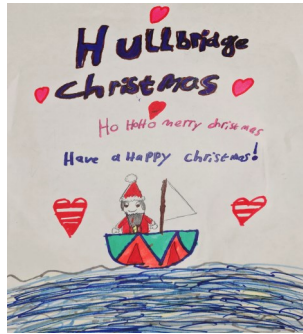 Hullbridge
Christmas
Ho HoHo merry christmas
Have a Happy christmas!